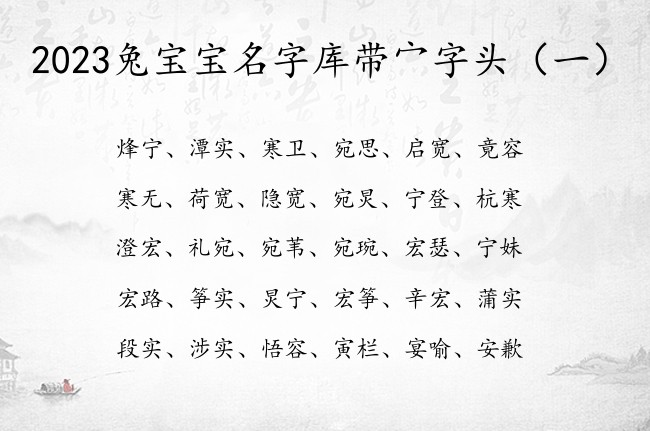 2023兔宝宝名字库带宀字头（一）
烽宁、潭实、寒卫、宛思、启宽、竟容
寒无、荷宽、隐宽、宛炅、宁登、杭寒
澄宏、礼宛、宛苇、宛琬、宏瑟、宁妹
宏路、筝实、炅宁、宏筝、辛宏、蒲实
段实、涉实、悟容、寅栏、宴喻、安歉